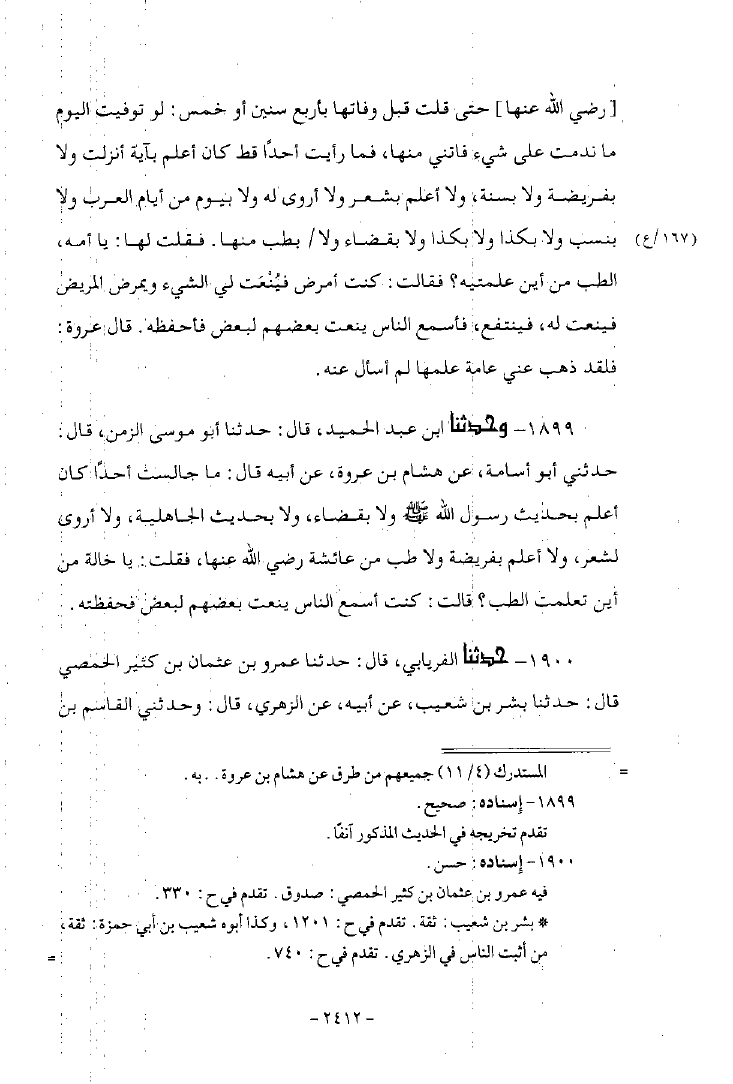 [رضي الله عنها] حتى قلت قبل وفاتها بأربع سنين أو خمس: لو توفيت اليوم
ما ندمت على شيء فاتني منها، فما رأيت أحدًا قط كان أعلم بآية أنزلت ولا
بفريضة ولا بسنة، ولا أعلم بشعر ولا أروى له ولا بيوم من أيام العرب ولا
(١٦٧/ع) بنسب ولا بكذا ولا بكذا ولا بقضاء ولا/ بطب منها. فقلت لها: يا أمه،
الطب من أين علمتيه؟ فقالت: كنت أمرض فيُنْعَت لي الشيء ويمرض المريض
فينعت له، فينتفع، فأسمع الناس ينعت بعضهم لبعض فأحفظه. قال عروة:
فلقد ذهب عني عامة علمها لم أسأل عنه.
١٨٩٩- وحدثنا ابن عبد الحميد، قال: حدثنا أبو موسى الزمن، قال:
حدثني أبو أسامة، عن هشام بن عروة، عن أبيه قال: ما جالست أحدًا كان
أعلم بحديث رسول الله ﷺ ولا بقضاء، ولا بحديث الجاهلية، ولا أروى
لشعر، ولا أعلم بفريضة ولا طب من عائشة رضي الله عنها، فقلت: يا خالة من
أين تعلمت الطب؟ قالت: كنت أسمع الناس ينعت بعضهم لبعض فحفظته.
١٩٠٠- حدثنا الفريابي، قال: حدثنا عمرو بن عثمان بن كثير الحمصي
قال: حدثنا بشر بن شعيب، عن أبيه، عن الزهري، قال: وحدثني القاسم بن
= المستدرك (٤/ ١١) جميعهم من طرق عن هشام بن عروة. . به.
١٨٩٩- إسناده: صحيح.
تقدم تخريجه في الحديث المذكور آنفًا.
١٩٠٠- إسناده: حسن.
فيه عمرو بن عثمان بن كثير الحمصي: صدوق. تقدم في ح: ٣٣٠.
* بشر بن شعيب: ثقة. تقدم في ح: ١٢٠١، وكذا أبوه شعيب بن أبي حمزة: ثقة،
من أثبت الناس في الزهري. تقدم في ح: ٧٤٠. =
-٢٤١٢-